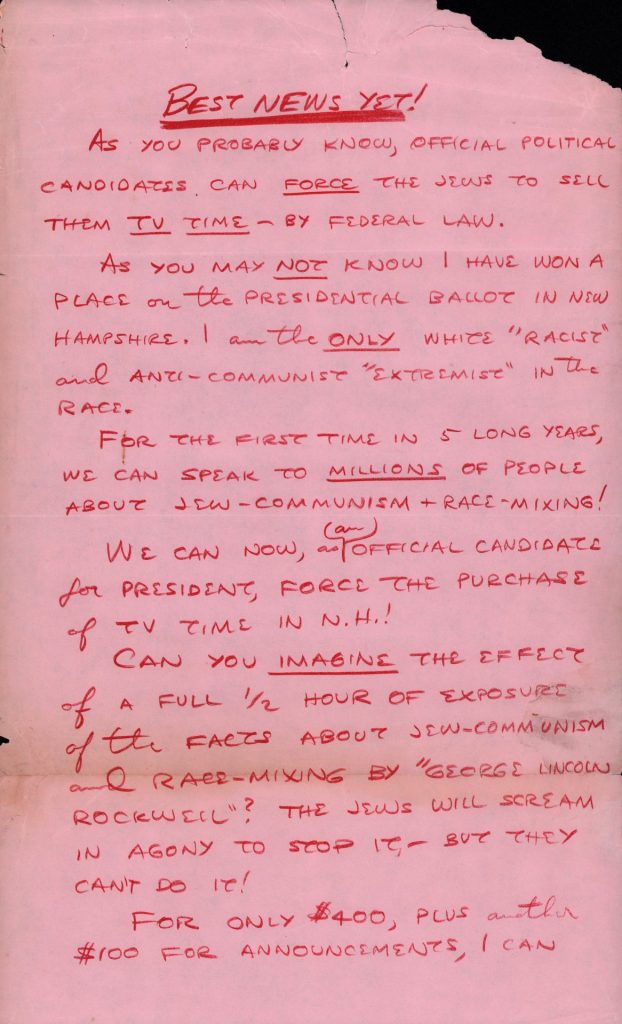 BEST NEWS YET!
AS YOU PROBABLY KNOW, OFFICIAL POLITICAL
CANDIDATES CAN FORCE THE JEWS TO SELL
THEM TV TIME – BY FEDERAL LAW.
AS YOU MAY NOT KNOW I HAVE WON A
PLACE on the PRESIDENTIAL BALLOT IN NEW
HAMPSHIRE. I am the ONLY WHITE "RACIST"
and ANTI-COMMUNIST "EXTREMIST" IN the
RACE.
FOR THE FIRST TIME IN 5 LONG YEARS,
WE CAN SPEAK TO MILLIONS OF PEOPLE
ABOUT JEW-COMMUNISM + RACE-MIXING!
(an)
WE CAN NOW, as OFFICIAL CANDIDATE
for PRESIDENT, FORCE THE PURCHASE
of TV TIME IN N.H.!
CAN YOU IMAGINE THE EFFECT
of A FULL 1/2 HOUR OF EXPOSURE
of the FACTS ABOUT JEW-COMMUNISM
and RACE-MIXING BY "GEORGE LINCOLN
ROCKWELL"? THE JEWS WILL SCREAM
IN AGONY TO STOP IT, – BUT THEY
CAN'T DO IT!
FOR ONLY $400, PLUS another
$100 FOR ANNOUNCEMENTS, I CAN